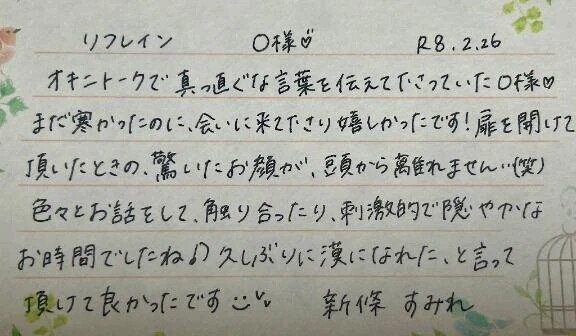 リフレイン O様♡ R8.2.26
オキニトークで真っ直ぐな言葉を伝えて下さっていたO様♡
まだ寒かったのに、会いに来て下さり嬉しかったです!扉を開けて
頂いたときの、驚いたお顔が、頭から離れません…(笑)
色々とお話をして、触り合ったり、刺激的で穏やかな
お時間でしたね♪久しぶりに漢になれた、と言って
頂けて良かったです 新條 すみれ